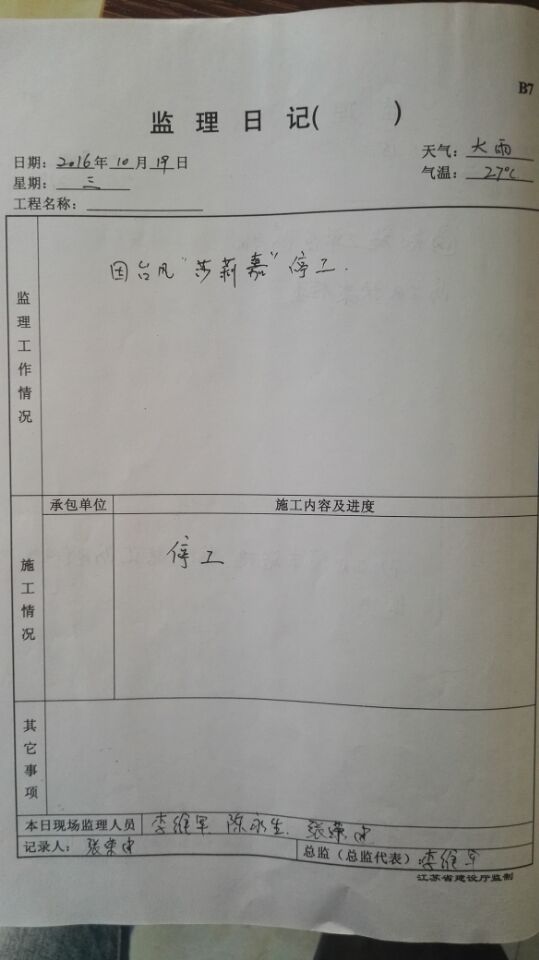 B7
监 理 日 记( )
日期: 2016 年 10 月 19 日
天气: 大雨
星期: 三
气温: 27℃
工程名称:
监理工作情况
因台风"莎莉嘉"停工.
承包单位
施工内容及进度
施工情况
停工
其它事项
本日现场监理人员 李维军 陈永生. 张荣中
记录人: 张荣中
总监（总监代表）: 李维军
江苏省建设厅监制